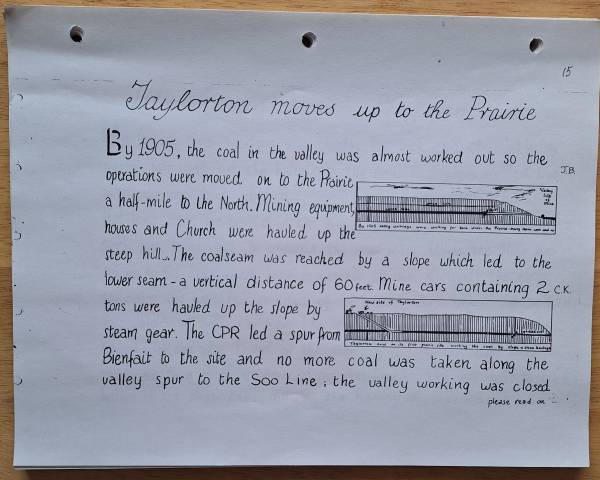 15
Taylorton moves up to the Prairie
By 1905, the coal in the valley was almost worked out so the
J.B.
operations were moved on to the Prairie
a half-mile to the North. Mining equipment,
houses and Church were hauled up the
steep hill. The coalseam was reached by a slope which led to the
lower seam - a vertical distance of 60 feet. Mine cars containing 2
C.K.
tons were hauled up the slope by
New site of Taylorton
steam gear. The CPR led a spur from
Bienfait to the site and no more coal was taken along the
valley spur to the Soo Line; the valley working was closed
please read on